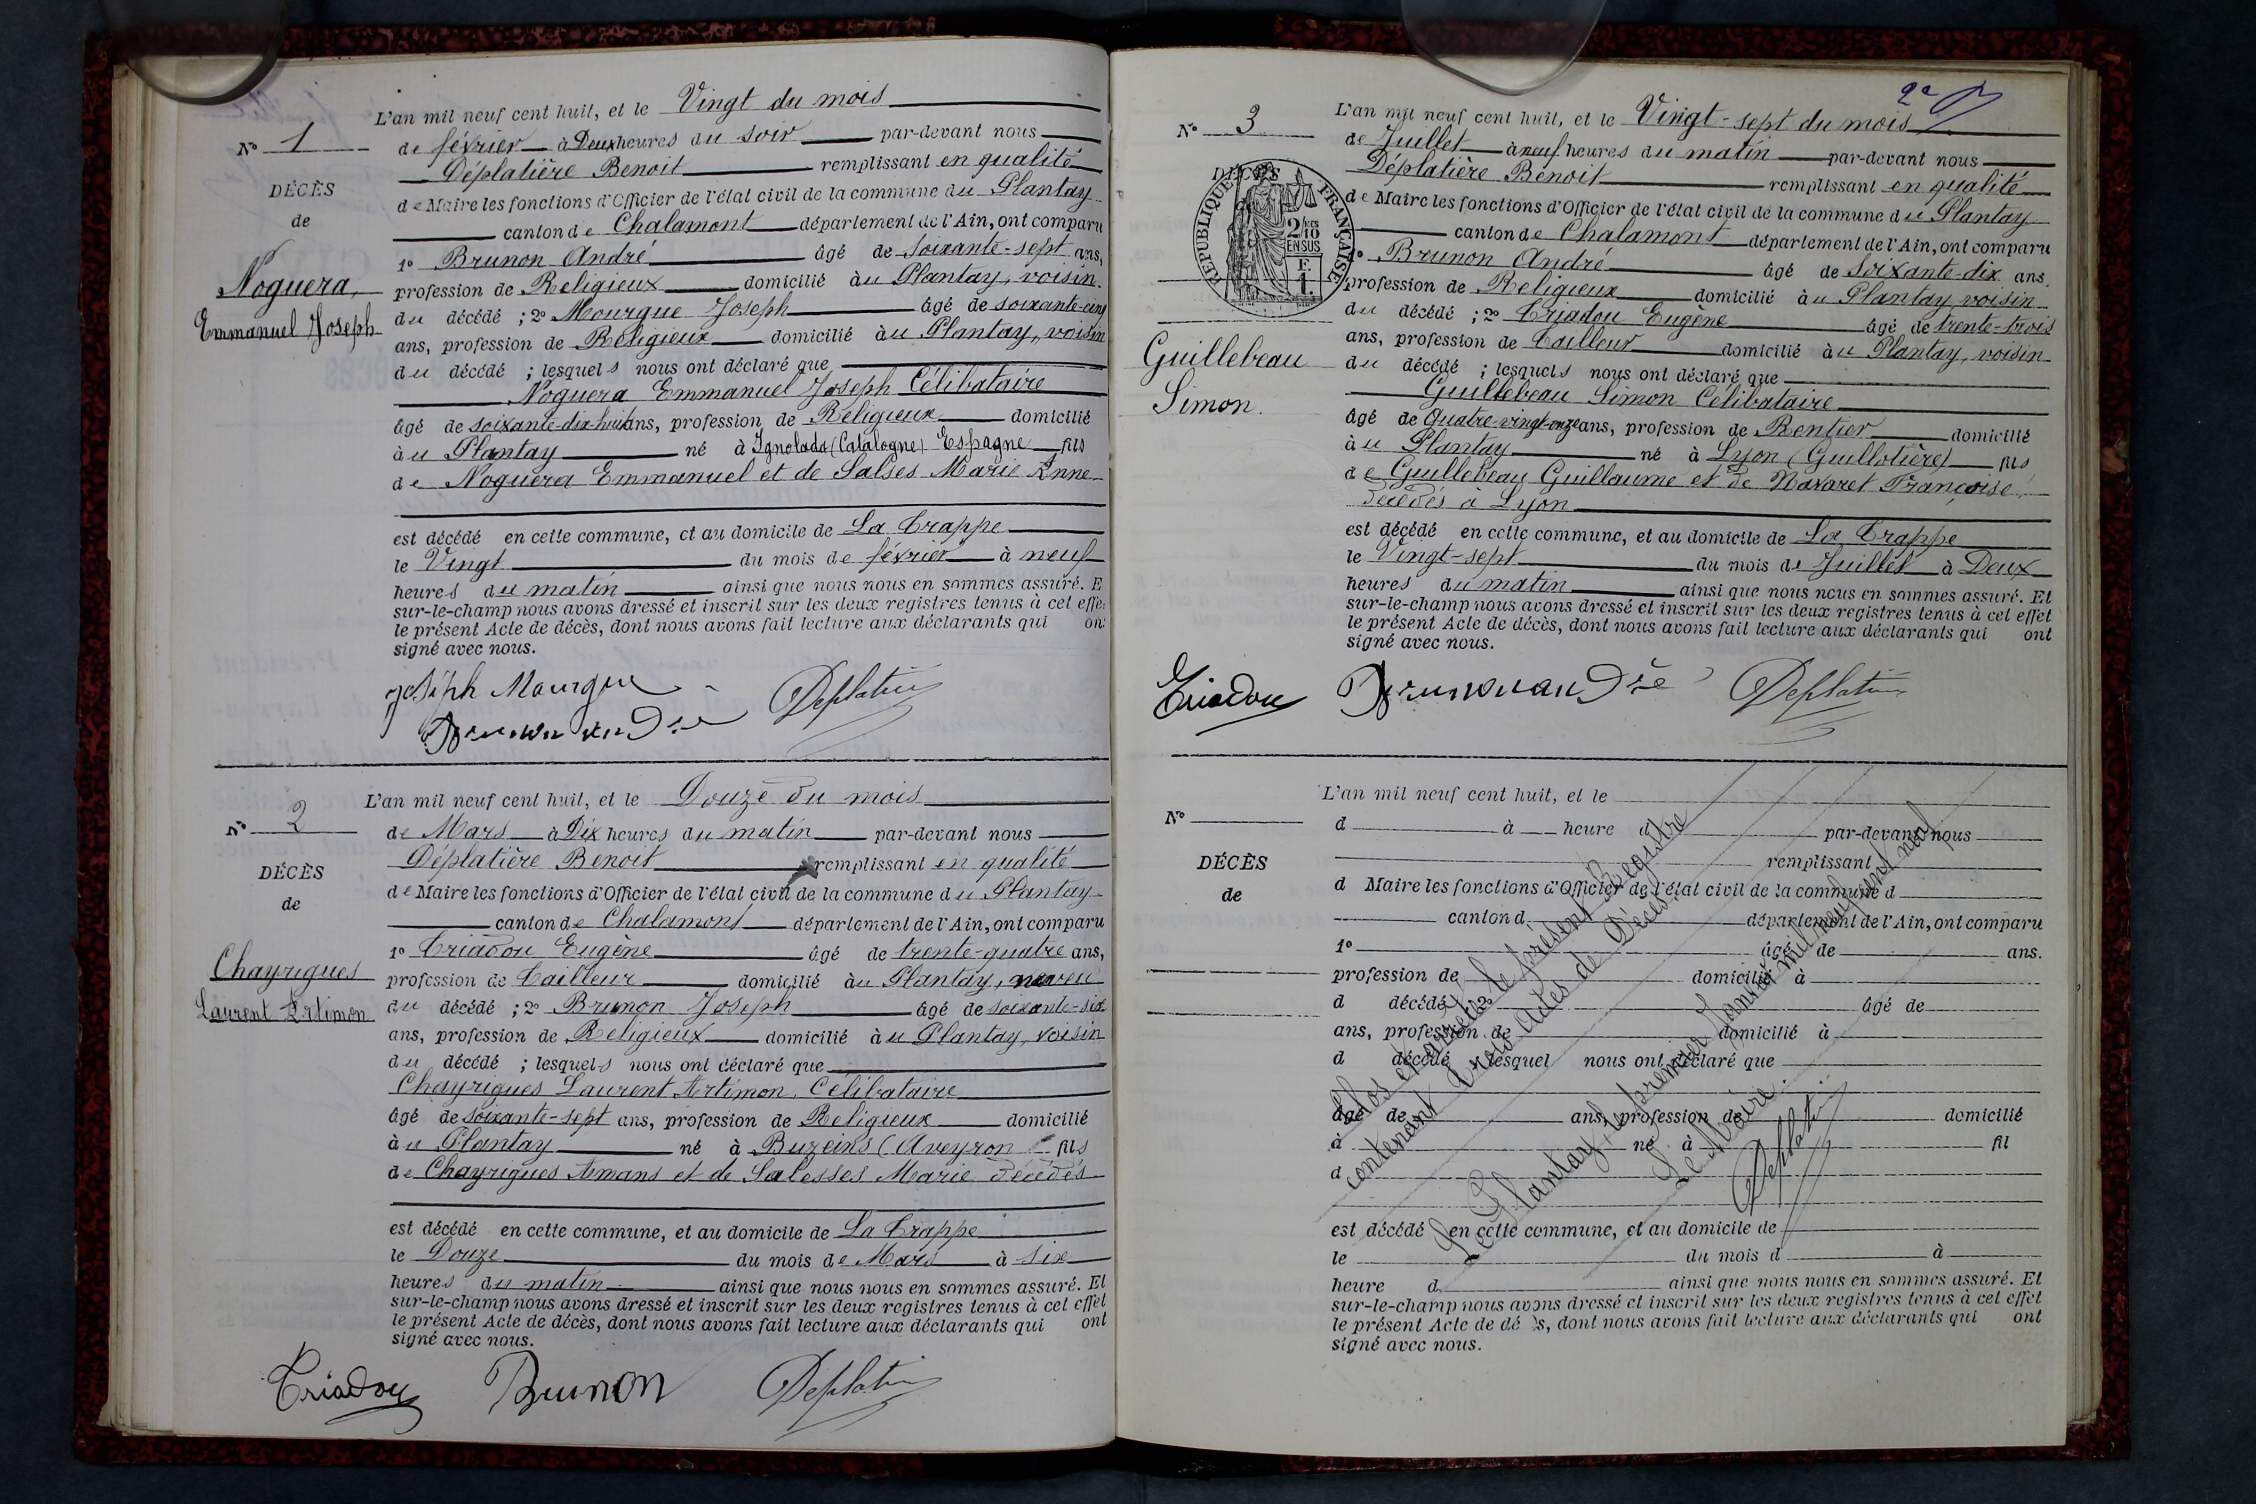 L'an mil neuf cent huit, et le Vingt du mois
N° 1
de février à Deux heures du soir par-devant nous
Déplatière Benoit remplissant en qualité
DÉCÈS
de Maire les fonctions d'Officier de l'état civil de la commune du Plantay
de
canton de Chalamont département de l'Ain, ont comparu
1° Brunon André âgé de soixante-sept ans,
Noguera,
profession de Religieux domicilié au Plantay, voisin
Emmanuel Joseph
du décédé ; 2° Mourgue Joseph âgé de soixante-cinq
ans, profession de Religieux domicilié au Plantay, voisin
du décédé ; lesquels nous ont déclaré que
Noguera Emmanuel Joseph Célibataire
âgé de soixante-dix-huit ans, profession de Religieux domicilié
au Plantay né à Ignolada (Catalogne) Espagne fils
de Noguera Emmanuel et de Salses Marie Anne
est décédé en cette commune, et au domicile de La Trappe
le Vingt du mois de février à neuf
heures du matin ainsi que nous nous en sommes assuré. E
sur-le-champ nous avons dressé et inscrit sur les deux registres tenus à cet effet
le présent Acte de décès, dont nous avons fait lecture aux déclarants qui on
signé avec nous.
Joseph Mourgue Déplatière
Brunon André
L'an mil neuf cent huit, et le Douze du mois
N° 2
de Mars à Dix heures du matin par-devant nous
Déplatière Benoit remplissant en qualité
DÉCÈS
de Maire les fonctions d'Officier de l'état civil de la commune du Plantay
de
canton de Chalamont département de l'Ain, ont comparu
1° Triadou Eugène âgé de trente-quatre ans,
Chayrigues
profession de Tailleur domicilié au Plantay, neveu
Laurent Artimon
du décédé ; 2° Brunon Joseph âgé de soixante-six
ans, profession de Religieux domicilié au Plantay, voisin
du décédé ; lesquels nous ont déclaré que
Chayrigues Laurent Artimon, Célibataire
âgé de soixante-sept ans, profession de Religieux domicilié
au Plantay né à Buzeins (Aveyron fils
de Chayrigues Amans et de Salesses Marie décédés
est décédé en cette commune, et au domicile de La Trappe
le Douze du mois de Mars à six
heures du matin ainsi que nous nous en sommes assuré. Et
sur-le-champ nous avons dressé et inscrit sur les deux registres tenus à cet effet
le présent Acte de décès, dont nous avons fait lecture aux déclarants qui ont
signé avec nous.
Triadou Brunon Déplatière
2e
L'an mil neuf cent huit, et le Vingt-sept du mois
N° 3
de Juillet à neuf heures du matin par-devant nous
Déplatière Benoit remplissant en qualité
DÉCÈS
RÉPUBLIQUE FRANÇAISE
2/10 EN SUS
F. 1.
de Maire les fonctions d'Officier de l'état civil de la commune du Plantay
canton de Chalamont département de l'Ain, ont comparu
1° Brunon André âgé de soixante-dix ans.
profession de Religieux domicilié au Plantay voisin
du décédé ; 2° Triadou Eugène âgé de trente-trois
ans, profession de Tailleur domicilié au Plantay, voisin
Guillebeau
du décédé ; lesquels nous ont déclaré que
Guillebeau Simon Célibataire
Simon.
âgé de Quatre-vingt-onze ans, profession de Rentier domicilié
au Plantay né à Lyon (Guillotière) fils
de Guillebeau Guillaume et de Navaret Françoise
décédés à Lyon
est décédé en cette commune, et au domicile de La Trappe
le Vingt-sept du mois de Juillet à Deux
heures du matin ainsi que nous nous en sommes assuré. Et
sur-le-champ nous avons dressé et inscrit sur les deux registres tenus à cet effet
le présent Acte de décès, dont nous avons fait lecture aux déclarants qui ont
signé avec nous.
Triadou Brunon André Déplatière
L'an mil neuf cent huit, et le
N°
d à heure d par-devant nous
remplissant
DÉCÈS
d Maire les fonctions d'Officier de l'état civil de la commune d
de
canton d département de l'Ain, ont comparu
1° âgé de ans.
profession de domicilié à
d décédé ; 2° âgé de
ans, profession de domicilié à
d décédé lesquel nous ont déclaré que
âgé de ans, profession de domicilié
à né à fil
d
est décédé en cette commune, et au domicile de
le du mois d à
heure d ainsi que nous nous en sommes assuré. Et
sur-le-champ nous avons dressé et inscrit sur les deux registres tenus à cet effet
le présent Acte de dé s, dont nous avons fait lecture aux déclarants qui ont
signé avec nous.
Clos et arrêté le présent Registre
contenant trois actes de Décès.
Le Plantay, le premier Janvier mil neuf cent neuf
Le Maire.
Déplatière